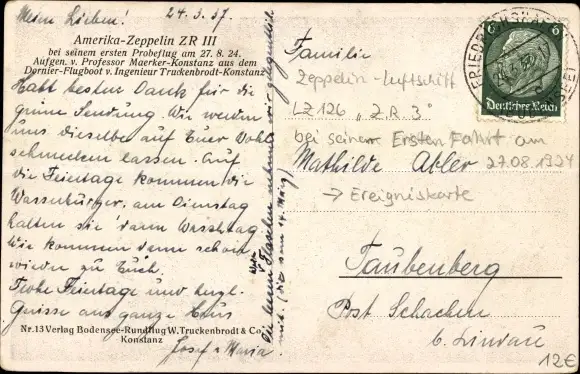 Mein Lieben! 24.3.37.
Amerika-Zeppelin ZR III
bei seinem ersten Probeflug am 27. 8. 24.
Aufgen. v. Professor Maerker-Konstanz aus dem
Dornier-Flugboot v. Ingenieur Truckenbrodt-Konstanz
Habt besten Dank für die
grüne Sendung. Wir werden
uns dieselbe auf Euer Wohl
schmecken lassen. Auf
die Feiertage kommen die
Wasserbürger, am Dienstag
halten sie dann Waschtag.
Wir kommen dann schon
wieder zu Euch.
Frohe Feiertage und herzl.
Grüsse aus ganze Haus
Nr. 13 Verlag Bodensee-Rundflug W. Truckenbrodt & Co.
Konstanz
Josef u Maria
Familie
Zeppelin-Luftschiff
LZ 126 „Z.R.3"
bei seinem Ersten Fahrt am
Mathilde Abler 27.08.1924
→ Ereigniskarte
Taubenberg
Post Schachen
b. Lindau
12€
6 6
Deutsches Reich